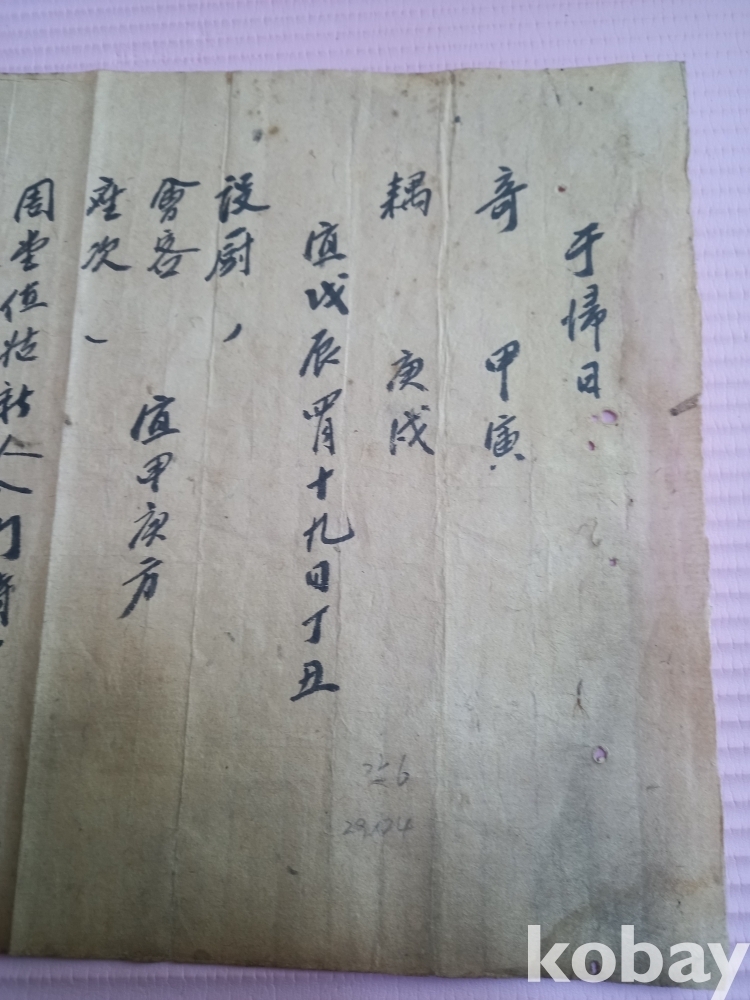 于歸日
奇 甲寅
耦 庚戌
宜戊辰四月十九日丁丑
设廚、
會客 宜甲庚方
座次、
周堂值姑新人入门時
kobay